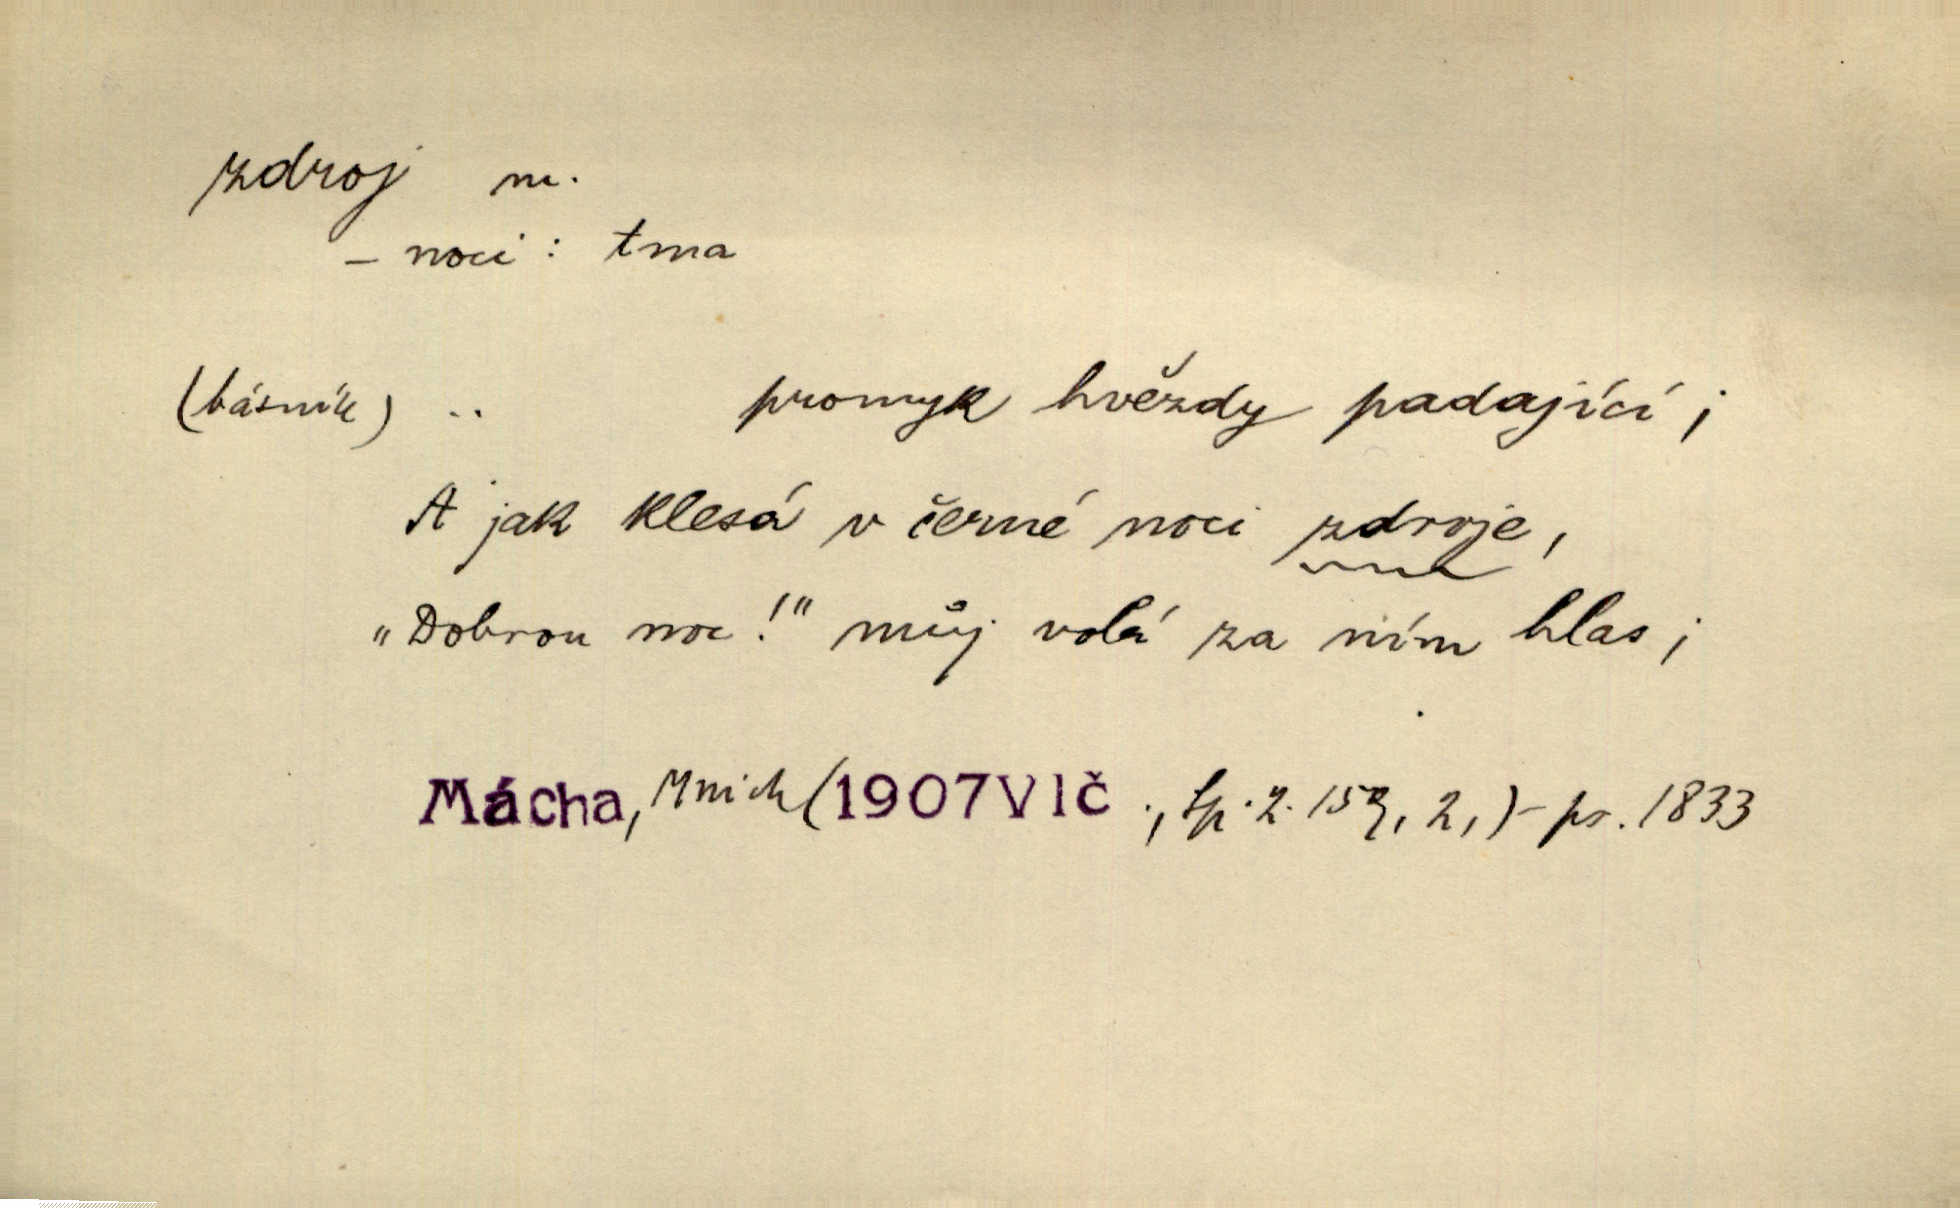 zdroj m.
– noci : tma
(básník) .. promyk hvězdy padající ;
A jak klesá v černé noci zdroje,
„Dobrou noc!" můj volá za ním hlas ;
Mácha, Mnich (1907Vlč ., Sp. 2. 159, 2,) – ps. 1833